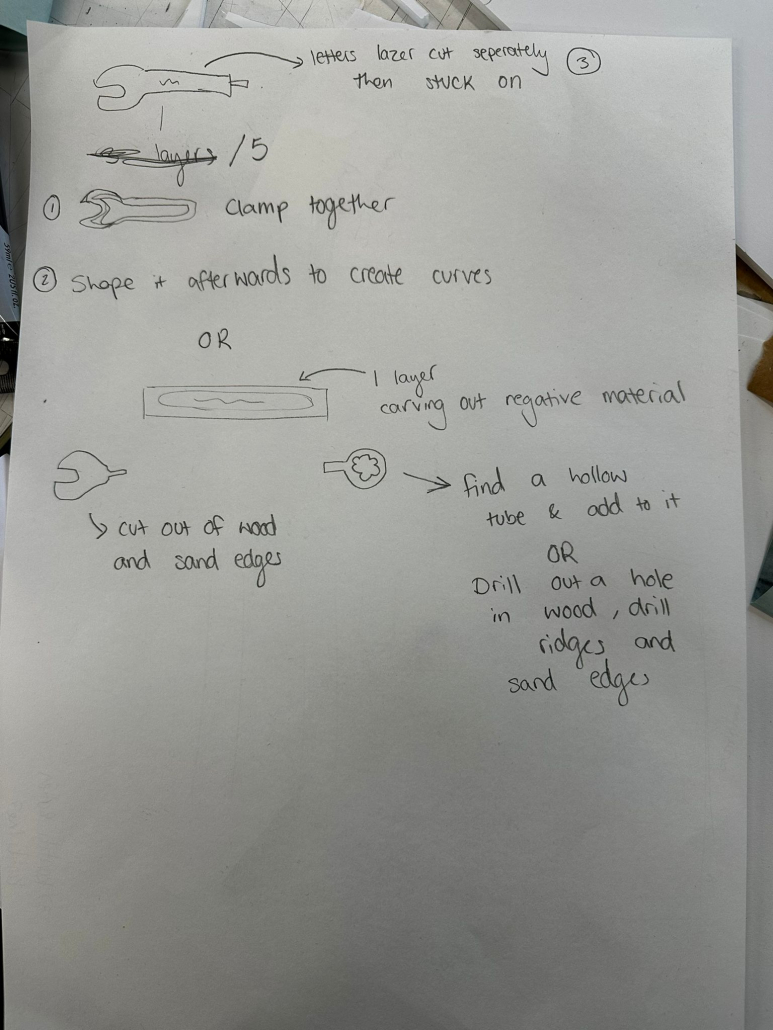 letters lazer cut seperately ③
then stuck on
layers /5
① Clamp together
② Shape it afterwards to create curves
OR
1 layer
carving out negative material
find a hollow
tube & add to it
cut out of wood
and sand edges
OR
Drill out a hole
in wood, drill
ridges and
sand edges